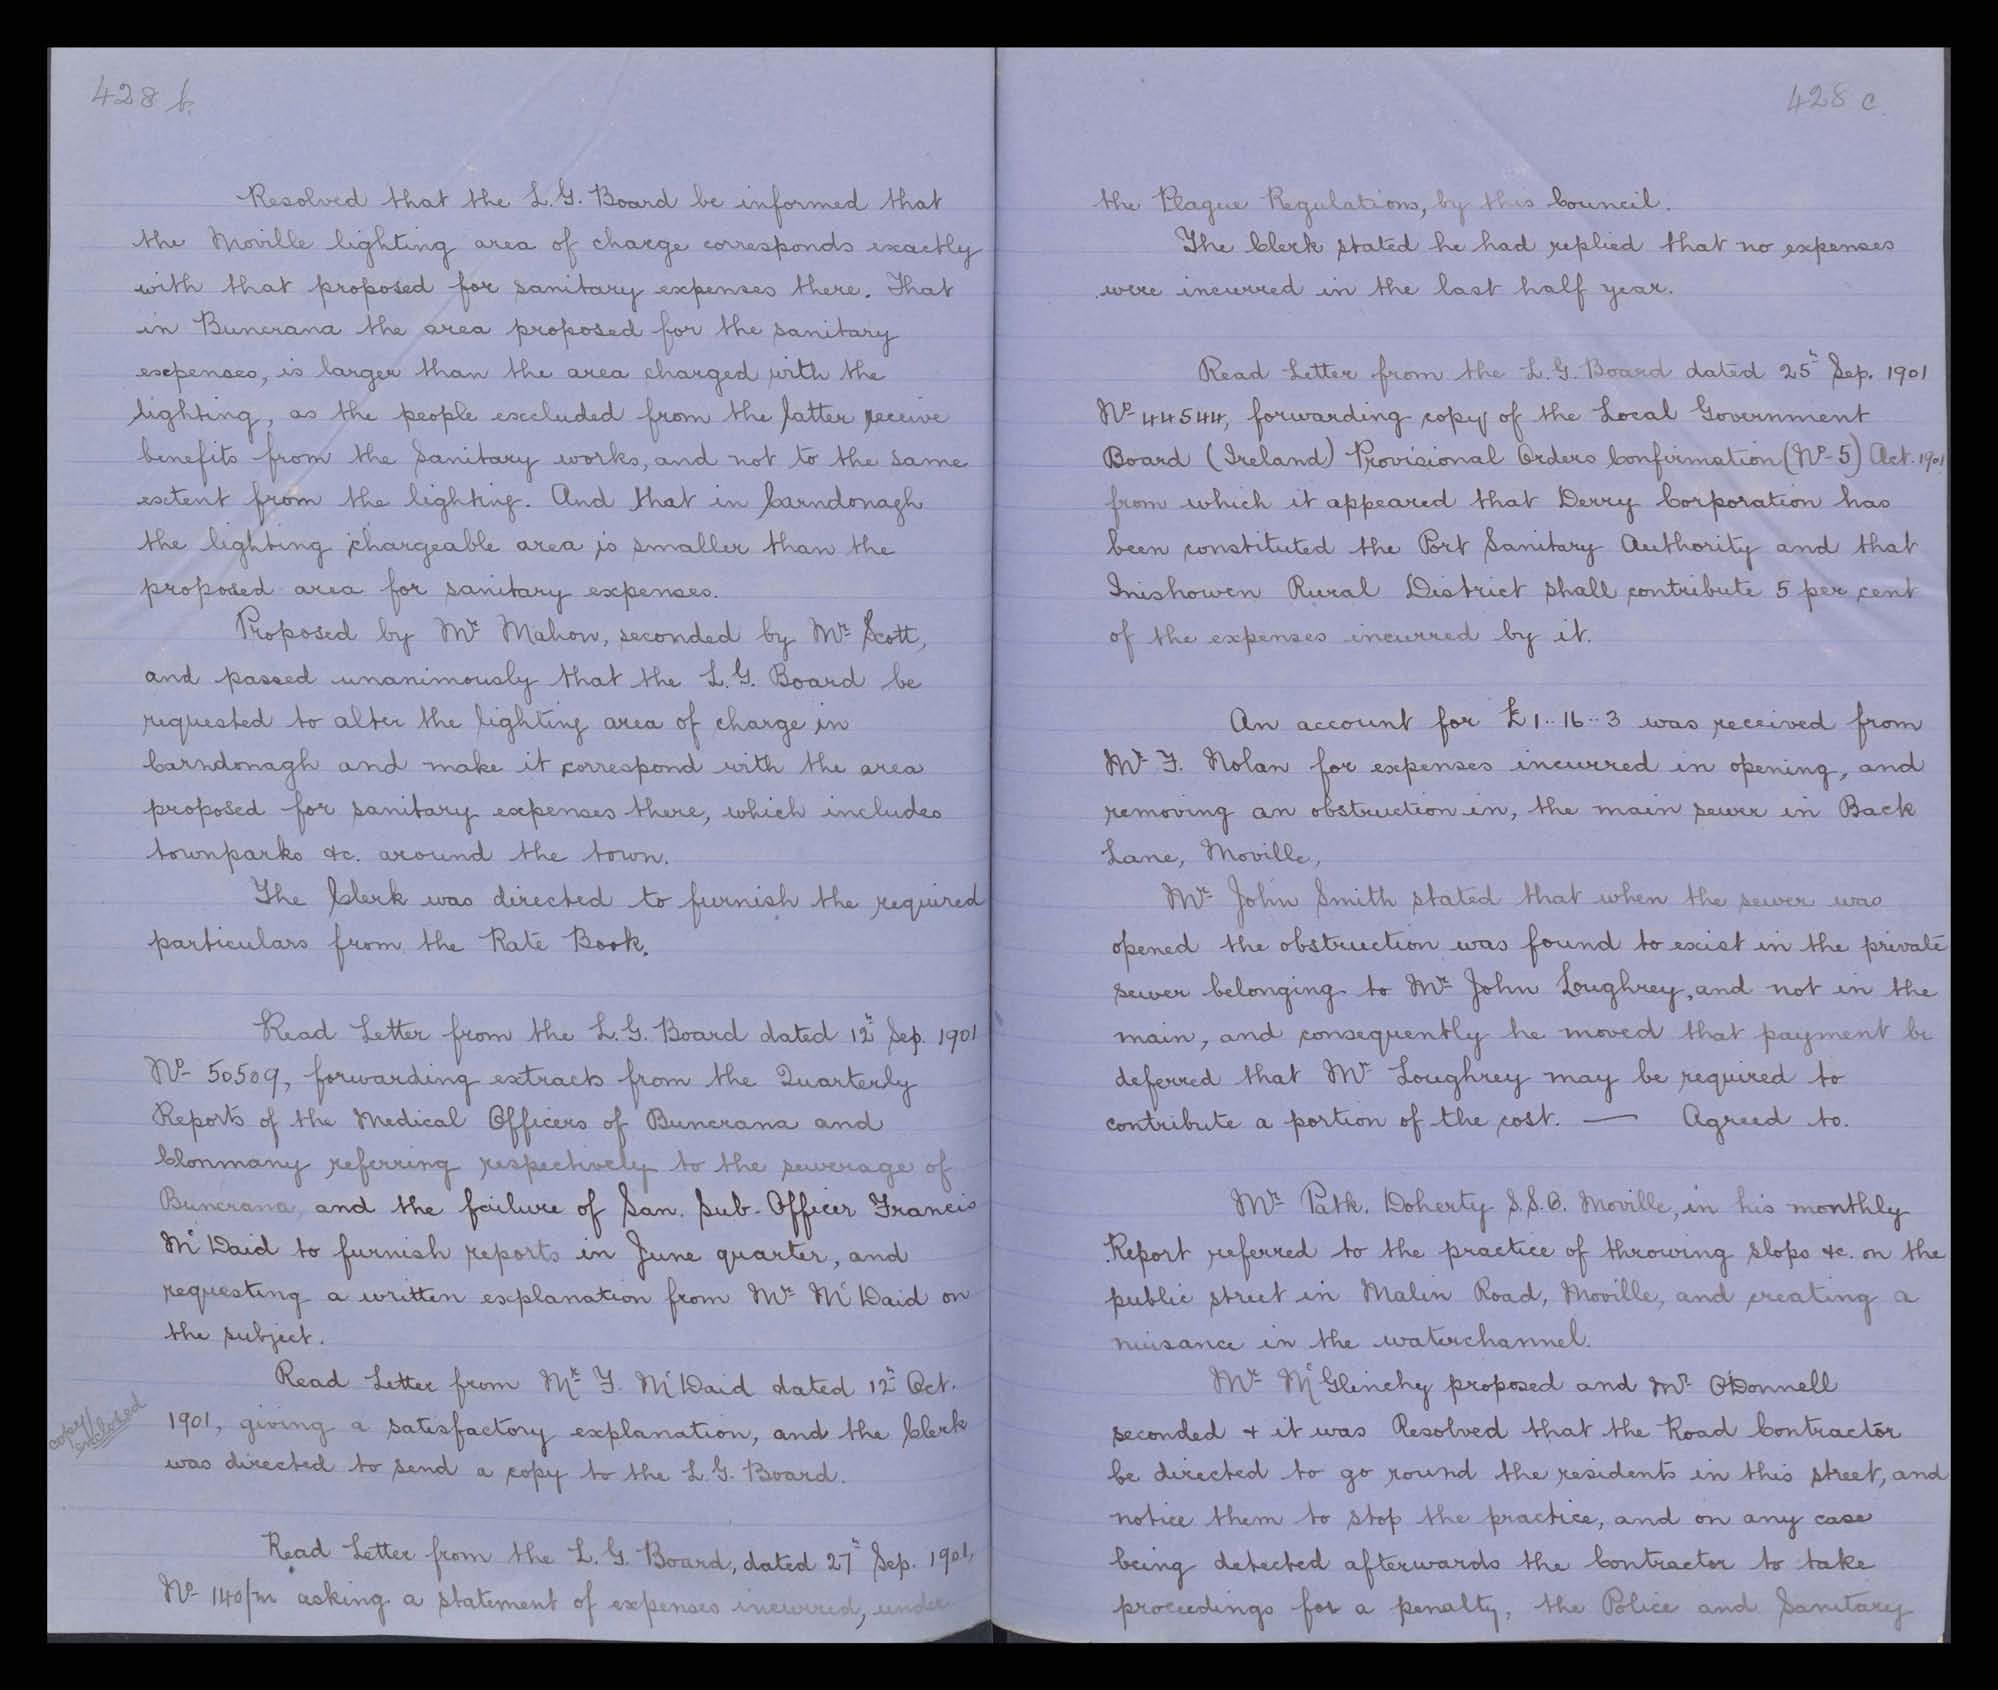 428 b.
Resolved that the L.G. Board be informed that
the Moville lighting area of charge corresponds exactly
with that proposed for sanitary expenses there. That
in Buncrana the area proposed for the sanitary
expenses, is larger than the area charged with the
lighting, as the people excluded from the latter receive
benefits from the Sanitary works, and not to the same
extent from the lighting. And that in Carndonagh
the lighting chargeable area is smaller than the
proposed area for sanitary expenses.
Proposed by Mr Mahon, seconded by Mr Scott,
and passed unanimously that the L.G. Board be
requested to alter the lighting area of charge in
Carndonagh and make it correspond with the area
proposed for sanitary expenses there, which includes
townparks &c. around the town.
The Clerk was directed to furnish the required
particulars from the Rate Book.
Read Letter from the L.G. Board dated 12th Sep. 1901
No 50509, forwarding extracts from the Quarterly
Reports of the Medical Officers of Buncrana and
Clonmany referring respectively to the sewerage of
Buncrana, and the failure of San. Sub-Officer Francis
McDaid to furnish reports in June quarter, and
requesting a written explanation from Mr McDaid on
the subject.
Read Letter from Mr F. McDaid dated 12th Oct.
1901, giving a satisfactory explanation, and the Clerk
was directed to send a copy to the L.G. Board.
copy enclosed
Read Letter from the L.G. Board, dated 27th Sep. 1901,
No 140/m asking a statement of expenses incurred, under
428 c
the Plague Regulations, by this Council.
The Clerk stated he had replied that no expenses
were incurred in the last half year.
Read Letter from the L.G. Board dated 25th Sep. 1901
No 44544, forwarding copy of the Local Government
Board (Ireland) Provisional Orders Confirmation (No 5) Act. 1901
from which it appeared that Derry Corporation has
been constituted the Port Sanitary Authority and that
Inishowen Rural District shall contribute 5 per cent
of the expenses incurred by it.
An account for £1..16..3 was received from
Mr F. Nolan for expenses incurred in opening, and
removing an obstruction in, the main sewer in Back
Lane, Moville,
Mr John Smith stated that when the sewer was
opened the obstruction was found to exist in the private
sewer belonging to Mr John Loughrey, and not in the
main, and consequently he moved that payment be
deferred that Mr Loughrey may be required to
contribute a portion of the cost. — Agreed to.
Mr Patk. Doherty S.S.O. Moville, in his monthly
Report referred to the practice of throwing slops &c. on the
public street in Malin Road, Moville, and creating a
nuisance in the waterchannel.
Mr McGlinchy proposed and Mr O'Donnell
seconded & it was Resolved that the Road Contractor
be directed to go round the residents in this street, and
notice them to stop the practice, and on any case
being detected afterwards the Contractor to take
proceedings for a penalty, the Police and Sanitary